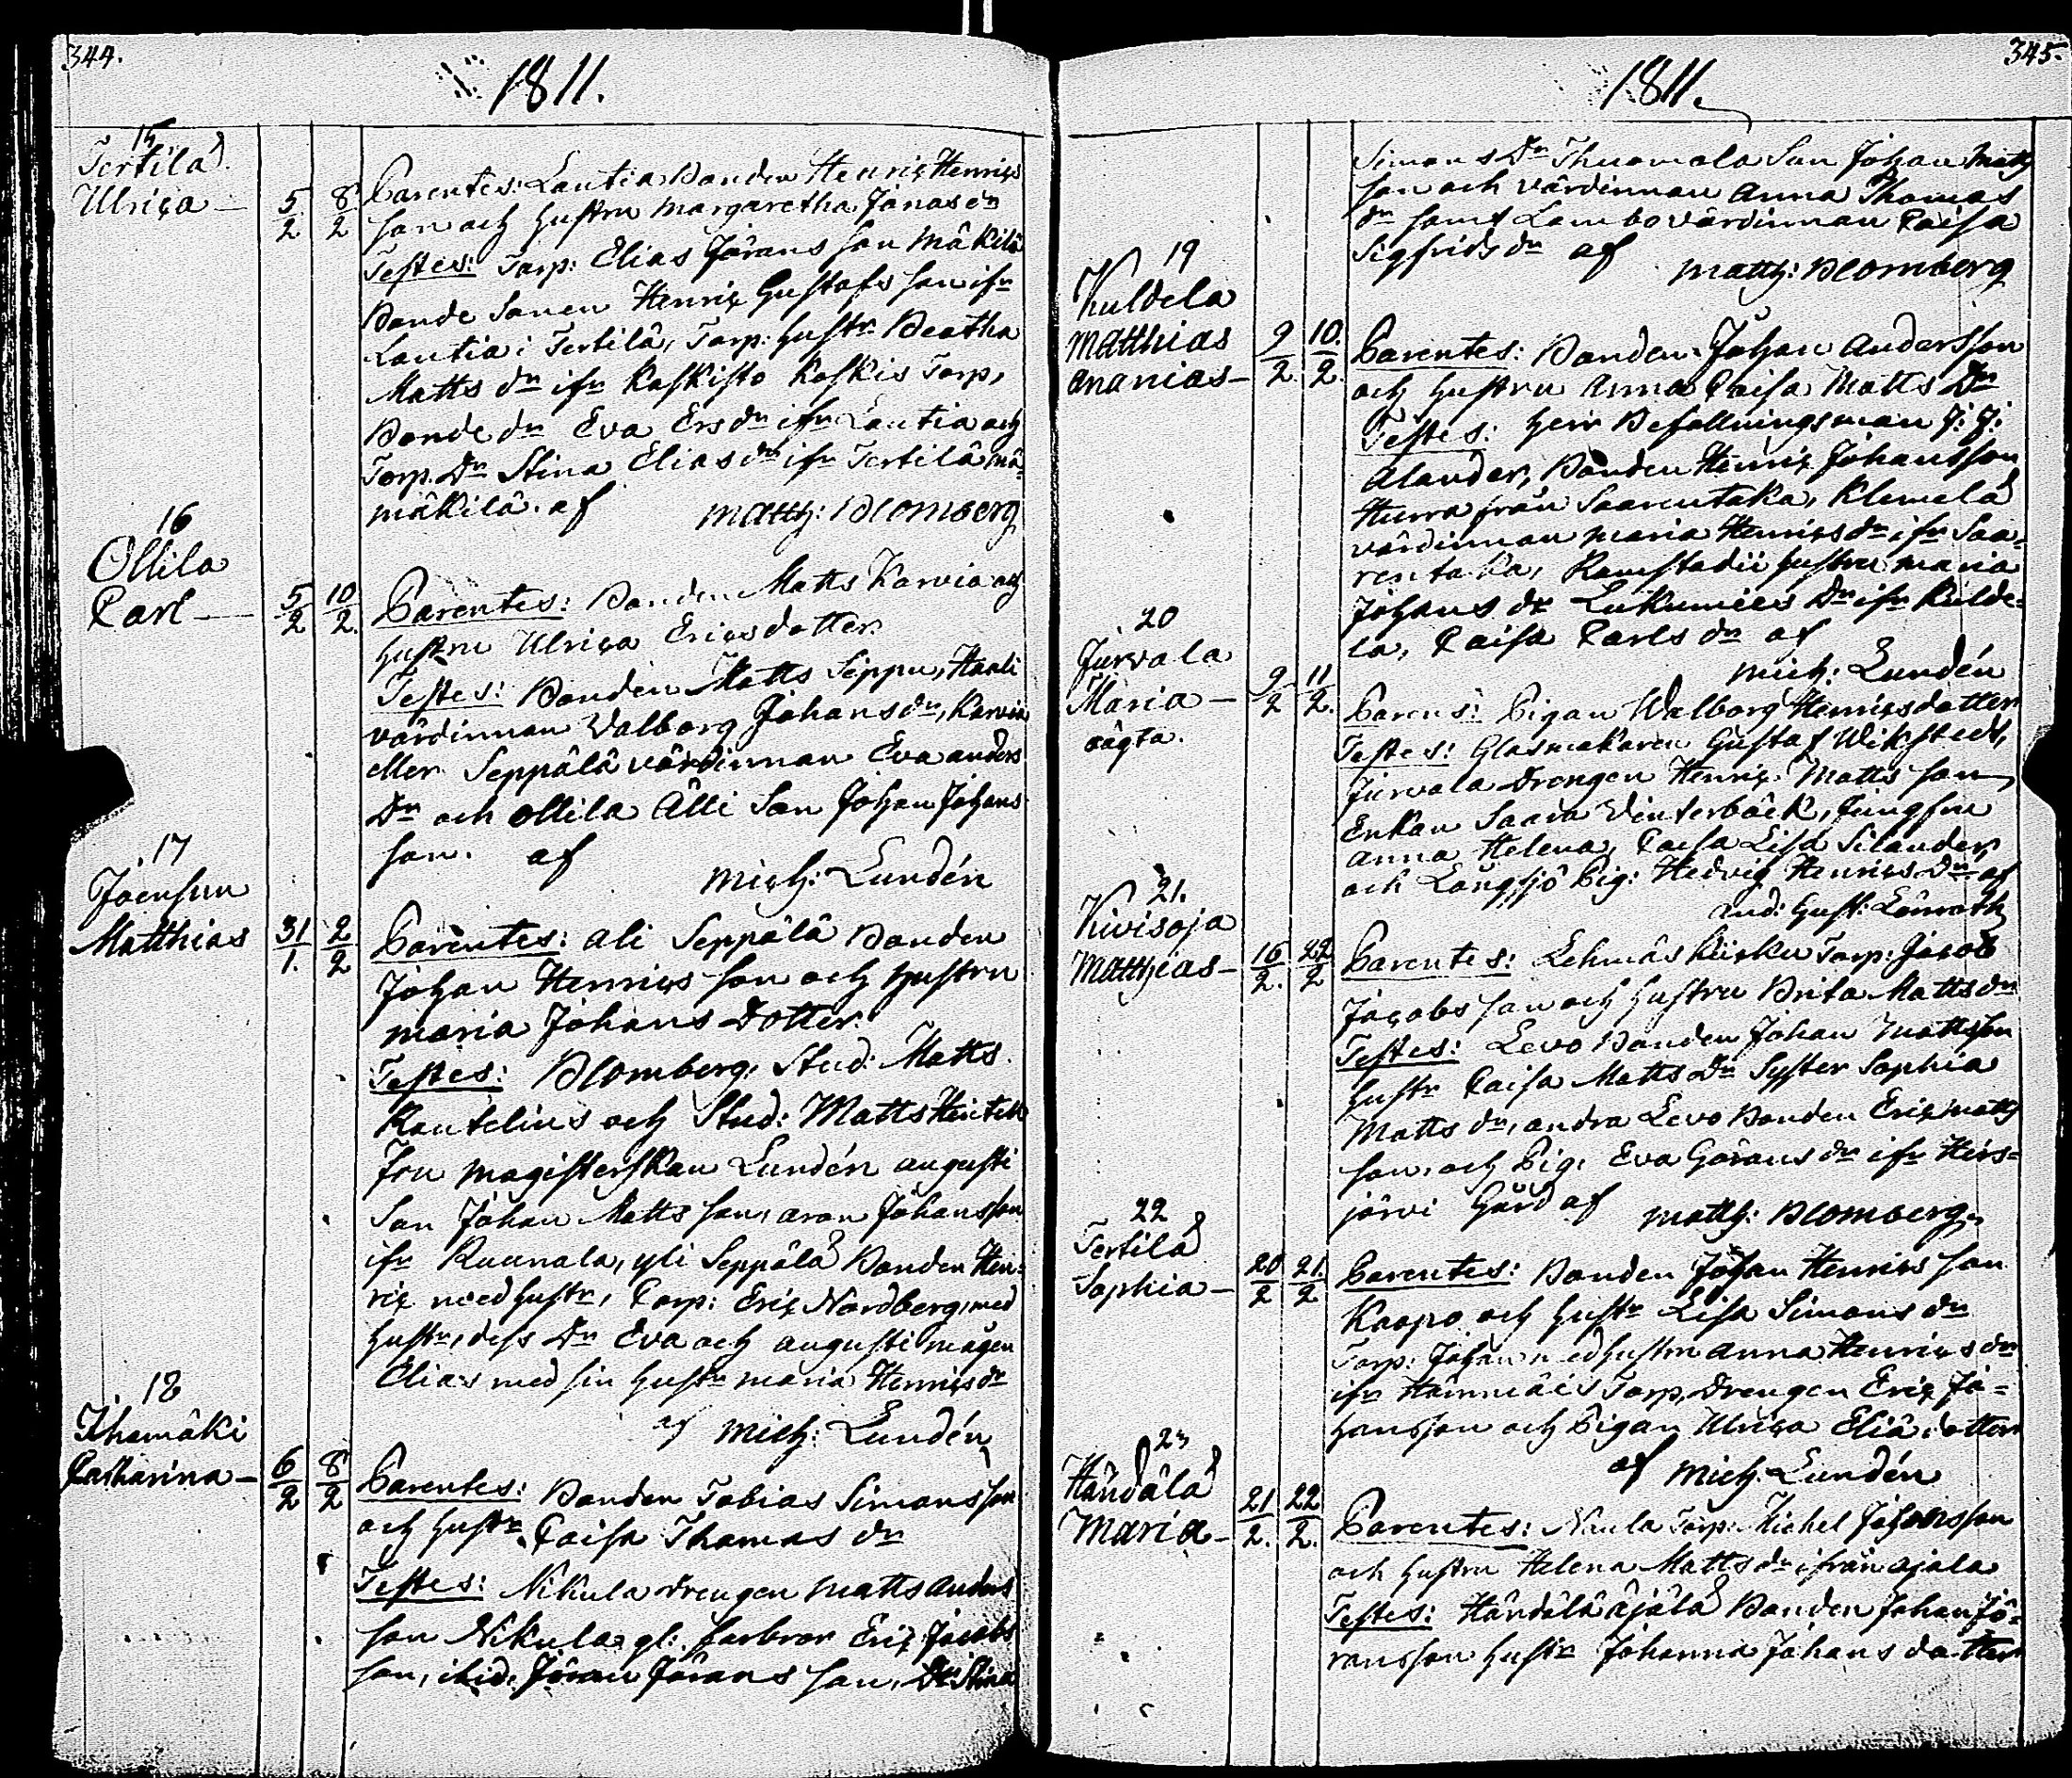 344.
1811.
15
Tertilä
Ulrica — 5/2 8/2
Parentes: Lautia Bonden Henric Henrics
son och hustru Margaretha Jonas dr
Testes: Torp: Elias Jörans son Mäkilä
Bonde Sonen Henric Gustafs son ifr
Lautia i Tertilä, Torp: hustr Beatha
Matts dr ifr Koskisto Koskis Torp,
Bonde dr Eva Ers dr ifr Lautia och
Torp. Dr Stina Elias dr ifr Tertilä mä-
mäkilä. af Matth: Blomberg
16
Ollila
Carl — 5/2 10/2.
Parentes: Bonden Matts Karvia och
hustru Ulrica Ericsdotter.
Testes: Bonden Matts Seppu, Hanli
värdinnan Valborg Johans dr, Karvia
eller Seppälä värdinnan Eva anders
Dr och Ollila Älli Son Johan Johans
son. af
Mich: Lundén
17
Joensuu
Matthias 31/1. 2/2
Parentes: Ali Seppälä Bonden
Johan Henrics son och hustru
Maria Johans Dotter.
Testes: Blomberg, Stud: Matts
Kautelius och Stud: Matts
Fru magisterskan Lundén augusti
Son Johan Matts son, aron Johansson
ifr Ruunala, yli Seppälä Bonden Hen-
ric med hustr, Corp: Eric Nordberg, med
hustr, dess Dr Eva och augusti mågen
Elias med sin hustr Maria Henrics dr
af Mich: Lundén
18
Ihamäki
Catharina — 6/2 8/2
Parentes: Bonden Tobias Simonsson
och hustr Caisa Thomas dr
Testes: Nikula Drengen Matts Anders
son Nikula gl: farbror Eric Jacobs
son, ibid: Jöran Jörans son, Dr Stina
345.
1811.
Simons Dr Thuomola Son Johan Matts
son och värdinnan Anna Thomas
dr samt Lambo värdinnan Caisa
Sigfrids dr af Matth: Blomberg
19
Kuldela
Matthias 9/2. 10./2.
Ananias —
Parentes: Bonden Johan Andersson
och hustru Anna Caisa Matts Dr
Testes: Herr Befallningsman J: J:
Alander, Bonden Henric Johansson
Hurra från Saarentaka, Klemelä
värdinnan Maria Henrics dr ifr Saa-
rentaka, Ramstadii hustru Maria
Johans dr Lukumies Dr ifr Kulde-
la, Caisa Carls dr af
Mich: Lundén
20
Jurvala
Maria — 9/2 11/2.
oägta.
Parens: Pigan Walborg Henricsdotter
Testes: Glasmakaren Gustaf Wikstedt,
Jurvala Drengen Henric Matts son,
Enkan Saara Vinterbäck, Jungfru
Anna Helena, Caisa Lisa Silander,
och Långsjö Pig: Hedvig Henrics Dr af
And: Gust: Lönroth
21.
Kivisoja
Matthias — 16/2. 22/2
Parentes: Lehmäs Kurku Torp: Jacob
Jacobs son och hustru Brita Matts dr
Testes: Levo Bonden Johan Mattsson
hustr Caisa Matts Dr Syster Sophia
Matts dr, andra Levo Bonden Eric Matts
son, och Pig: Eva Görans dr ifr Hirs-
järvi Gård af Matth: Blomberg.
22
Tertilä
Sophia — 20/2 21./2
Parentes: Bonden Johan Henrics son
Kaapo och hustr Lisa Simons dr
Torp: Johan med hustru Anna Henrics dr
ifr Hämmäis Torp, Drengen Eric Jo-
hansson och Pigan Ulrica Eliä dotter
af Mich: Lundén
23
Händälä
Maria — 21/2. 22/2.
Parentes: Naula Torp: Michel Johansson
och hustru Helena Matts dr ifrån ajala
Testes: Händälä äjälä Bonden Johan Jö-
ransson hustr Johanna Johans dotter